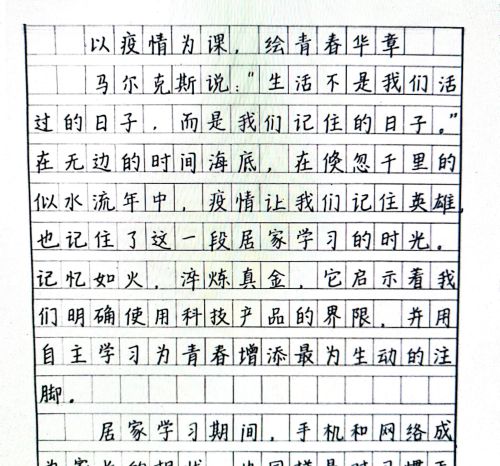 以疫情为课，绘青春华章
马尔克斯说："生活不是我们活
过的日子，而是我们记住的日子。"
在无边的时间海底，在倏忽千里的
似水流年中，疫情让我们记住英雄，
也记住了这一段居家学习的时光。
记忆如火，淬炼真金，它启示着我
们明确使用科技产品的界限，并用
自主学习为青春增添最为生动的注
脚。
居家学习期间，手机和网络成